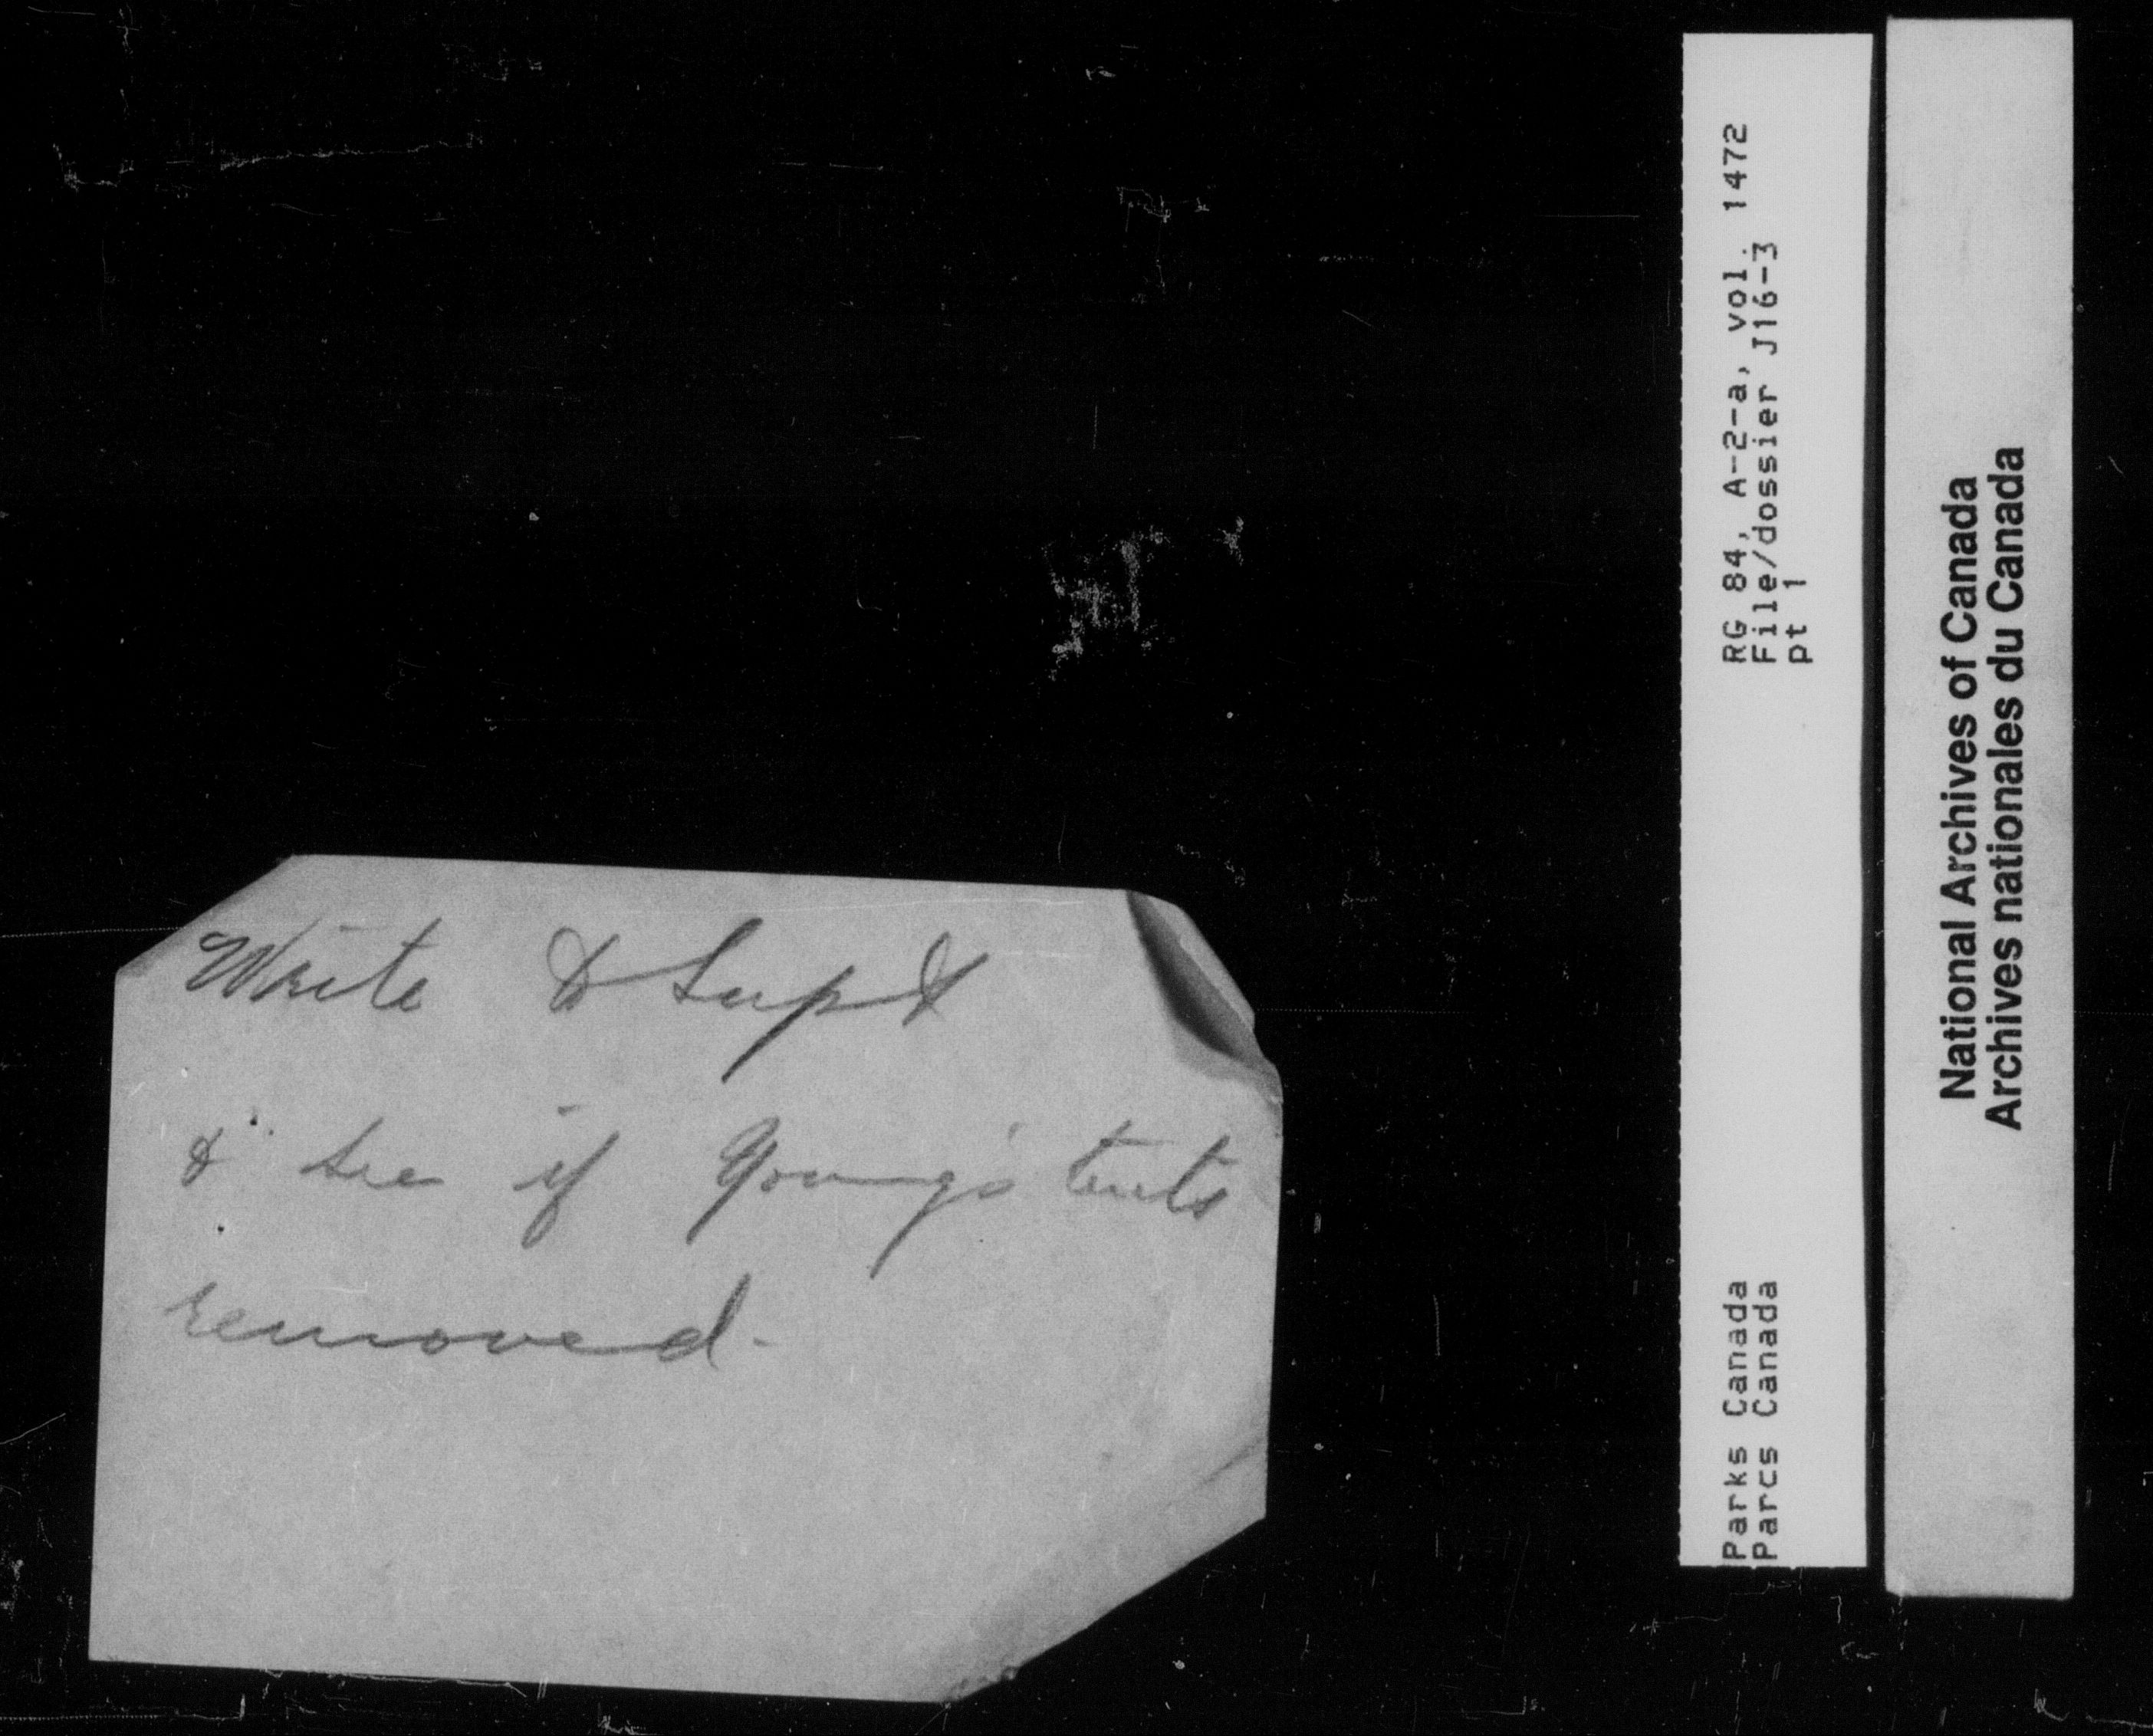 Write to Supt
& see if Young's tents
removed.
RG 84, A-2-a, vol. 1472
File/dossier J16-3
pt 1
Parks Canada
Parcs Canada
National Archives of Canada
Archives nationales du Canada